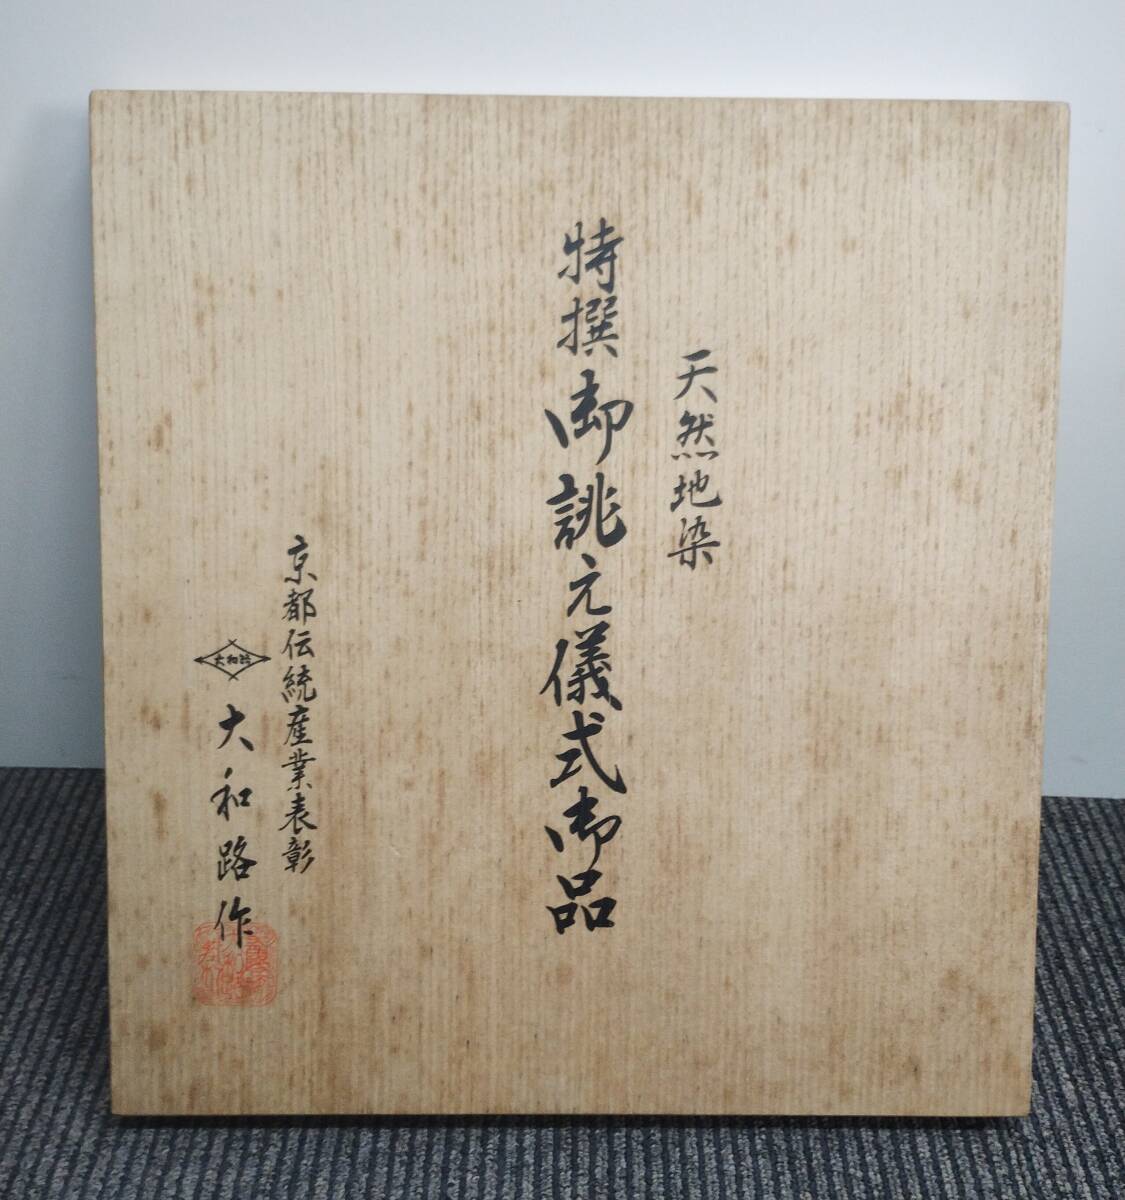 天然地染
特撰御誂元儀式御品
京都伝統産業表彰
大和路
大和路作